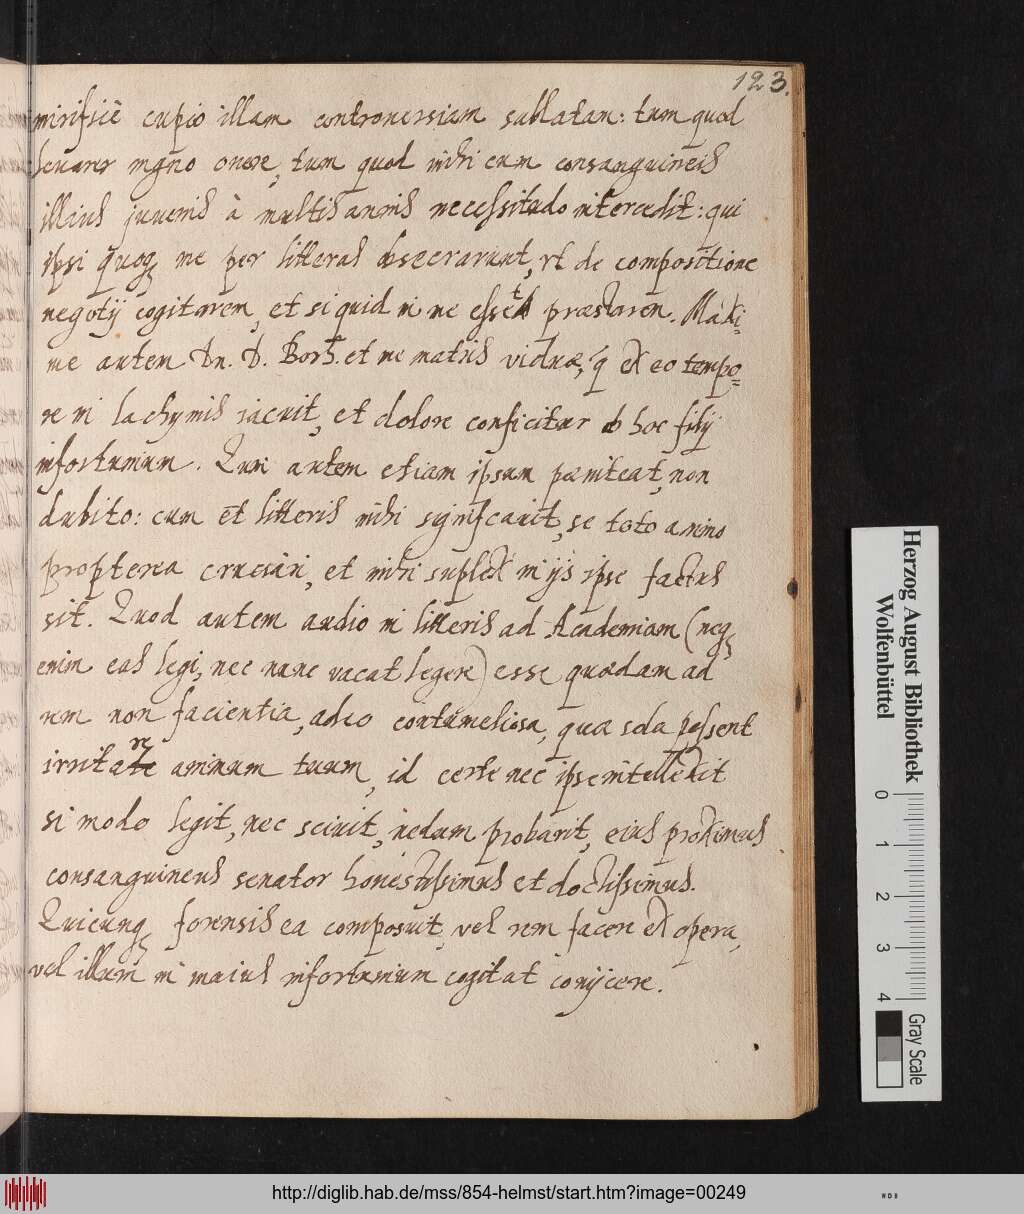 123.
mirificè cupio illam controversiam sublatam: tum quod
levarer mgno onere, tum quod mihi cum consanguineis
illius juvenis à multis annis necessitudo intercedit: qui
ipsi quoq me per litteras obsecrarunt, vt de compositione
negotij cogitarem, et si quid in me esset præstarem. Maxi-
me autem Dn. D. Borh. et me matris viduæ, q ex eo tempo=
re in lachymis iacuit, et dolore conficitur ob hoc filij
infortunium. Quin autem etiam ipsum pæniteat, non
dubito: cum et litteris mihi significavit, se toto animo
propterea cruciari, et mihi suplex in ijs ipse factus
sit. Quod autem audio in litteris ad Academiam (neq
enim eas legi, nec nunc vacat legere) esse quædam ad
rem non facientia, adeo contumeliosa, quæ sola possent
irritare animum tuum, id certe nec ipse intellexit
si modo legit, nec scivit, nedum probarit, eius proximus
consanguineus senator honestissimus et doctissimus.
Quicunq forensis ea composuit, vel rem facere ex opera,
vel illum in maius infortunium cogitat conijcere.
Herzog August Bibliothek
Wolfenbüttel
0 1 2 3 4
Gray Scale
http://diglib.hab.de/mss/854-helmst/start.htm?image=00249